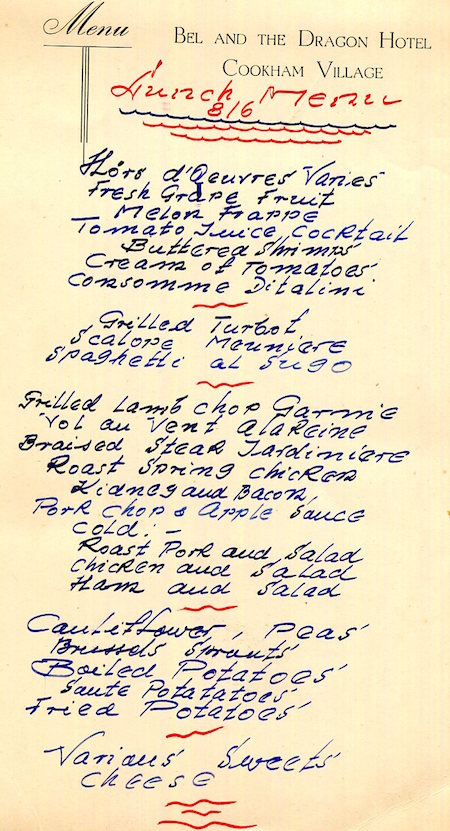 Menu
BEL AND THE DRAGON HOTEL
COOKHAM VILLAGE
Lunch Menu
8/6
Hors d'Oeuvres Varies
Fresh Grape Fruit
Melon Frappe
Tomato Juice Cocktail
Buttered Shrimps
Cream of Tomatoes
Consomme Ditalini
Grilled Turbot
Scalope Meuniere
Spaghetti al Sugo
Grilled Lamb chop Garnie
Vol au Vent a la Reine
Braised Steak Jardiniere
Roast Spring chicken
Kidney and Bacon
Pork chop & Apple Sauce
Cold: -
Roast Pork and Salad
chicken and Salad
Ham and Salad
Cauliflower, Peas
Brussels Sprouts
Boiled Potatoes
Saute Potatatoes
Fried Potatoes
Various Sweets
cheese